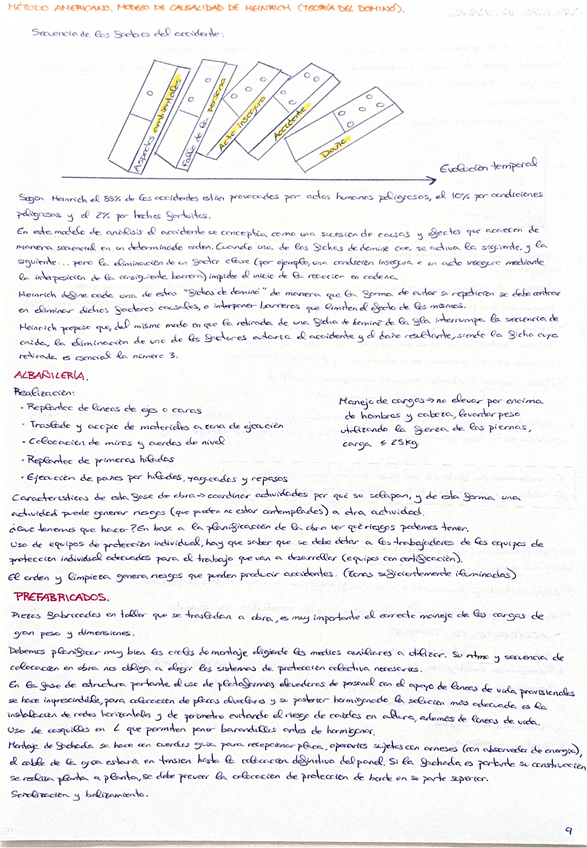 MÉTODO AMERICANO. MODELO DE CAUSALIDAD DE HEINRICH. (TEORÍA DEL DOMINÓ).
Secuencia de los factores del accidente:
Aspectos ambientales
Fallo de la persona
Acto inseguro
Accidente
Daño
Evolución temporal
Según Heinrich el 88% de los accidentes están provocados por actos humanos peligrosos, el 10% por condiciones
peligrosas y el 2% por hechos fortuitos.
En este modelo de análisis el accidente se conceptúa como una sucesión de causas y efectos que acaecen de
manera secuencial en un determinado orden. Cuando una de las fichas de dominó cae, se activa la siguiente, y la
siguiente... pero la eliminación de un factor clave (por ejemplo, una condición insegura o un acto inseguro mediante
la interposición de la consiguiente barrera) impide el inicio de la reacción en cadena.
Heinrich define cada una de estas "fichas de dominó" de manera que la forma de evitar se repitieron se debe centrar
en eliminar dichos factores causales, o interponer barreras que limiten el efecto de los mismos.
Heinrich propuso que, del mismo modo en que la retirada de una ficha de dominó de la fila interrumpe la secuencia de
caída, la eliminación de uno de los factores evitaría el accidente y el daño resultante, siendo la ficha cuya
retirada es esencial la número 3.
ALBAÑILERÍA.
Realización:
• Replanteo de líneas de eje o caras
• Traslado y acopio de materiales a zona de ejecución
• Colocación de miras y cuerdas de nivel
• Replanteo de primeras hiladas
• Ejecución de paños por hiladas, y repasos
Manejo de cargas → no elevar por encima
de hombros y cabeza, levantar peso
utilizando la fuerza de las piernas,
carga ≤ 25kg.
Características de esta fase de obra → coordinar actividades por qué se solapan, y de esta forma una
actividad puede generar riesgos (que pueden no estar contemplados) a otra actividad.
¿Qué tenemos que hacer? En base a la planificación de la obra ver qué riesgos podemos tener.
Uso de equipos de protección individual, hay que saber que se debe dotar a los trabajadores de los equipos de
protección individual adecuados para el trabajo que van a desarrollar (equipos con certificación).
El orden y limpieza genera riesgos que pueden producir accidentes. (Zonas suficientemente iluminadas)
PREFABRICADOS.
Piezas fabricadas en taller que se trasladan a obra, es muy importante el correcto manejo de las cargas de
gran peso y dimensiones.
Debemos planificar muy bien los ciclos de montaje eligiendo los medios auxiliares a utilizar. Su ritmo y secuencia de
colocación en obra nos obliga a elegir los sistemas de protección colectiva necesarios.
En la fase de estructura portante el uso de plataformas elevadoras de personal con el apoyo de líneas de vida provisionales
se hace imprescindible, para colocación de placas alveolares y su posterior hormigonado la solución más adecuada es la
instalación de redes horizontales y de perímetro evitando el riesgo de caídas en altura, además de líneas de vida.
Uso de casquillos en L que permiten poner barandillas antes de hormigonar.
Montaje de fachada se hace con cuerdas guía para recepcionar placa, operarios sujetos con arneses (con absorbedor de energía),
el cable de la grúa estará en tensión hasta la colocación definitiva del panel. Si la fachada es portante su construcción
se realiza planta a planta, se debe prever la colocación de protección de borde en su parte superior.
Señalización y balizamiento.
9